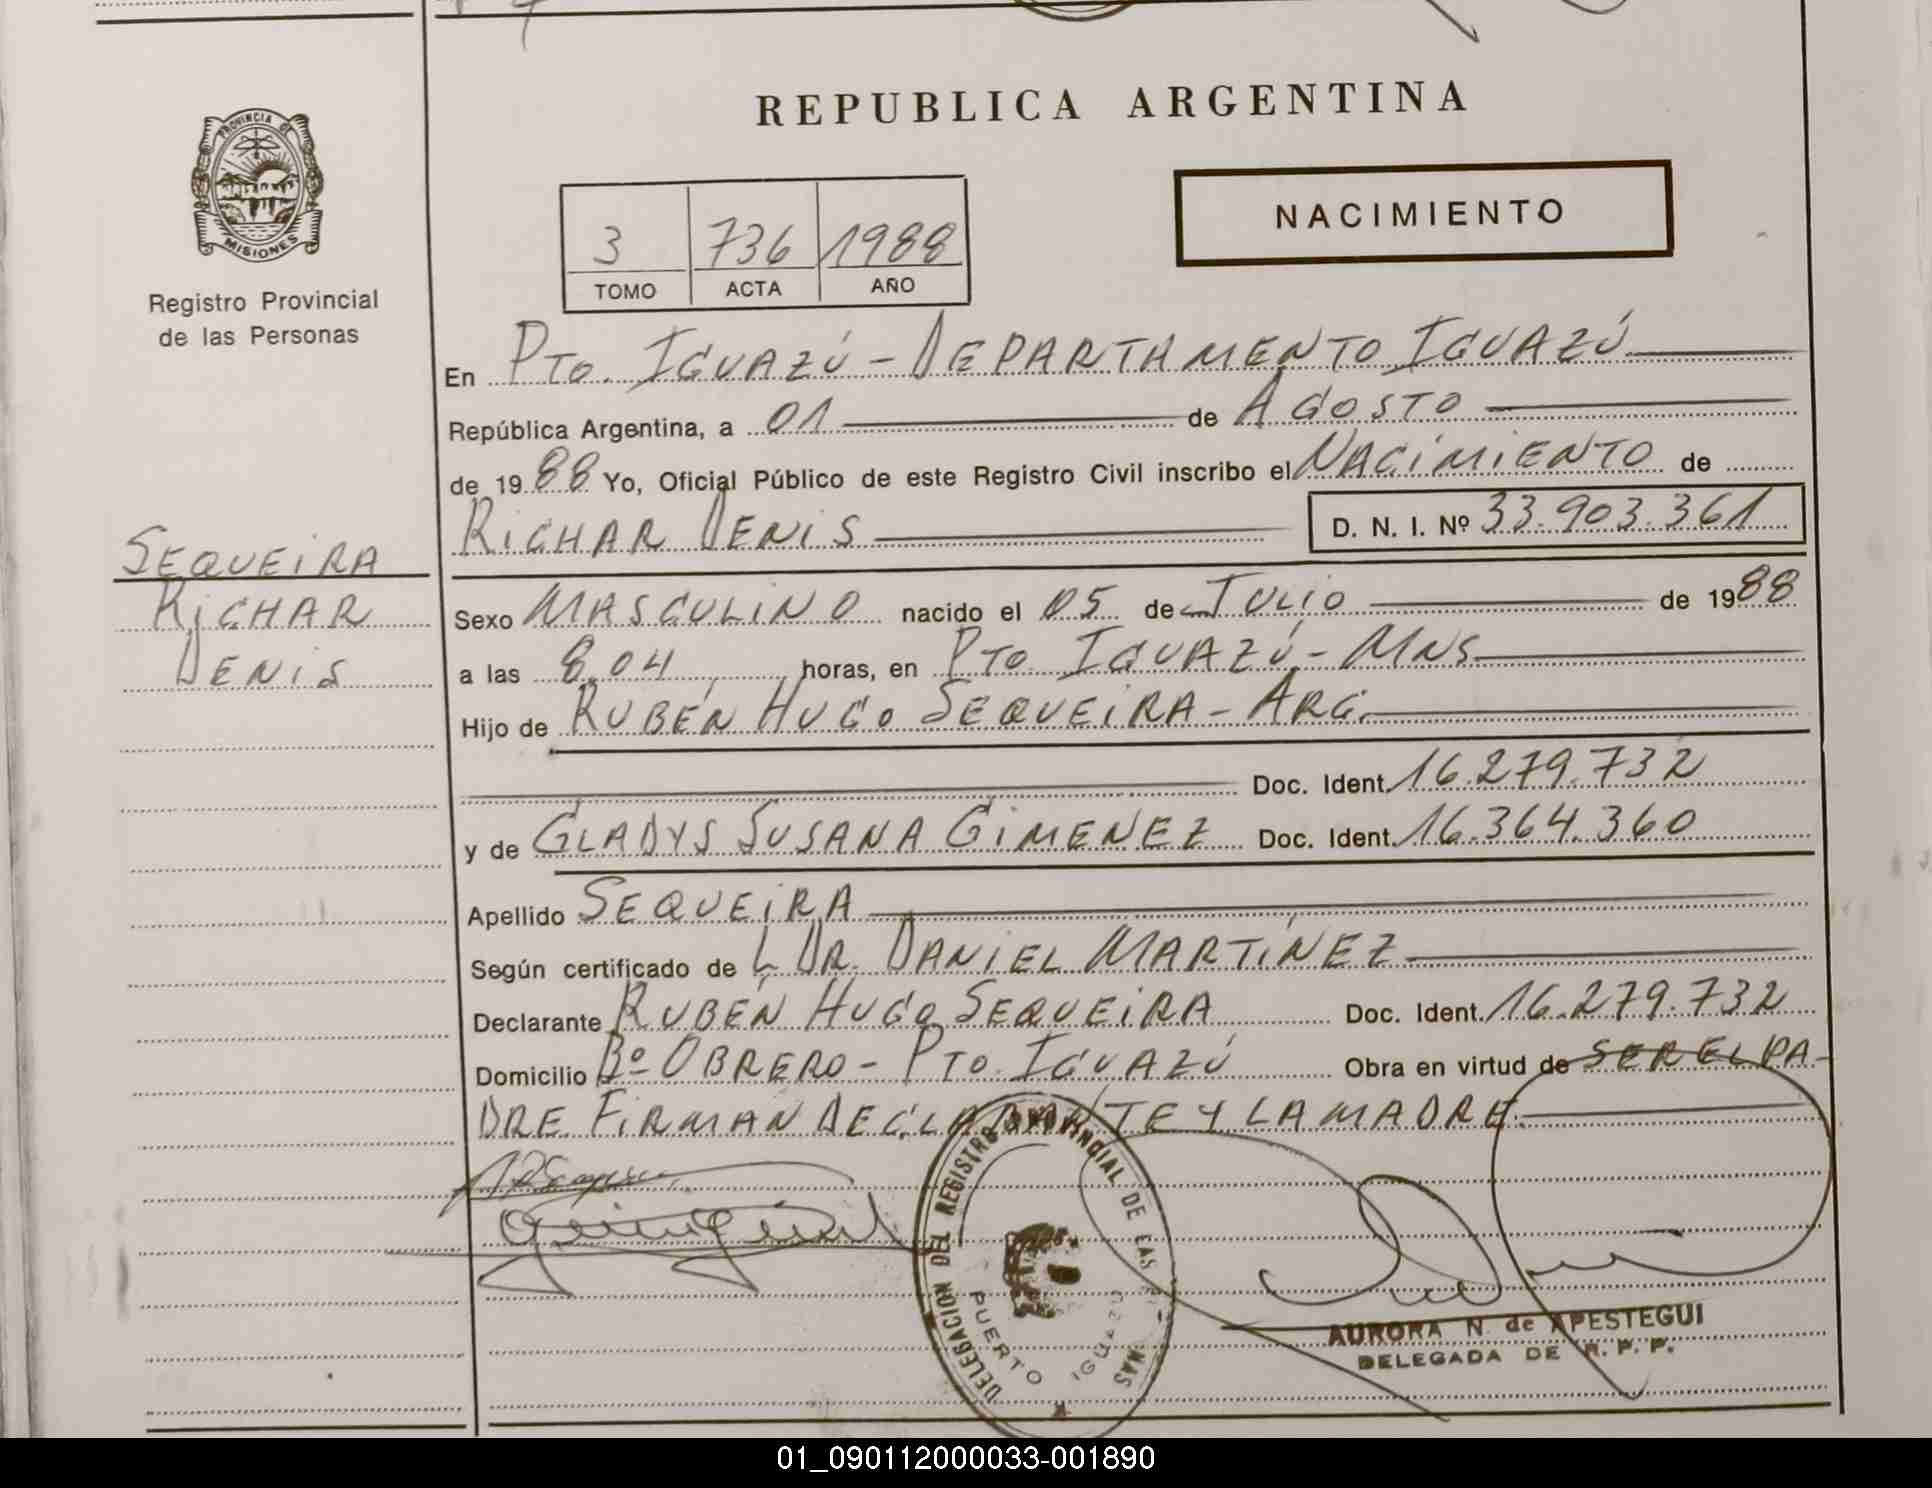 REPUBLICA ARGENTINA
PROVINCIA DE
MISIONES
Registro Provincial
de las Personas
NACIMIENTO
3 736 1988
TOMO ACTA AÑO
En PTO. IGUAZÚ - DEPARTAMENTO IGUAZÚ
República Argentina, a 01 de AGOSTO
de 1988 Yo, Oficial Público de este Registro Civil inscribo el NACIMIENTO de
RICHAR DENIS D. N. I. Nº 33.903.361
SEQUEIRA
RICHAR
DENIS
Sexo MASCULINO nacido el 05 de JULIO de 1988
a las 8.04 horas, en PTO. IGUAZÚ - MNS
Hijo de RUBÉN HUGO SEQUEIRA - ARG.
Doc. Ident. 16.279.732
y de GLADYS SUSANA GIMENEZ Doc. Ident. 16.364.360
Apellido SEQUEIRA
Según certificado de L DR. DANIEL MARTÍNEZ
Declarante RUBÉN HUGO SEQUEIRA Doc. Ident. 16.279.732
Domicilio Bº OBRERO - PTO. IGUAZÚ Obra en virtud de SER EL PA-
DRE. FIRMAN DECLARANTE Y LA MADRE.
DELEGACION DEL REGISTRO PROVINCIAL DE LAS
PUERTO IGUAZU
AURORA N. de APESTEGUI
DELEGADA DE R. P. P.
01_090112000033-001890